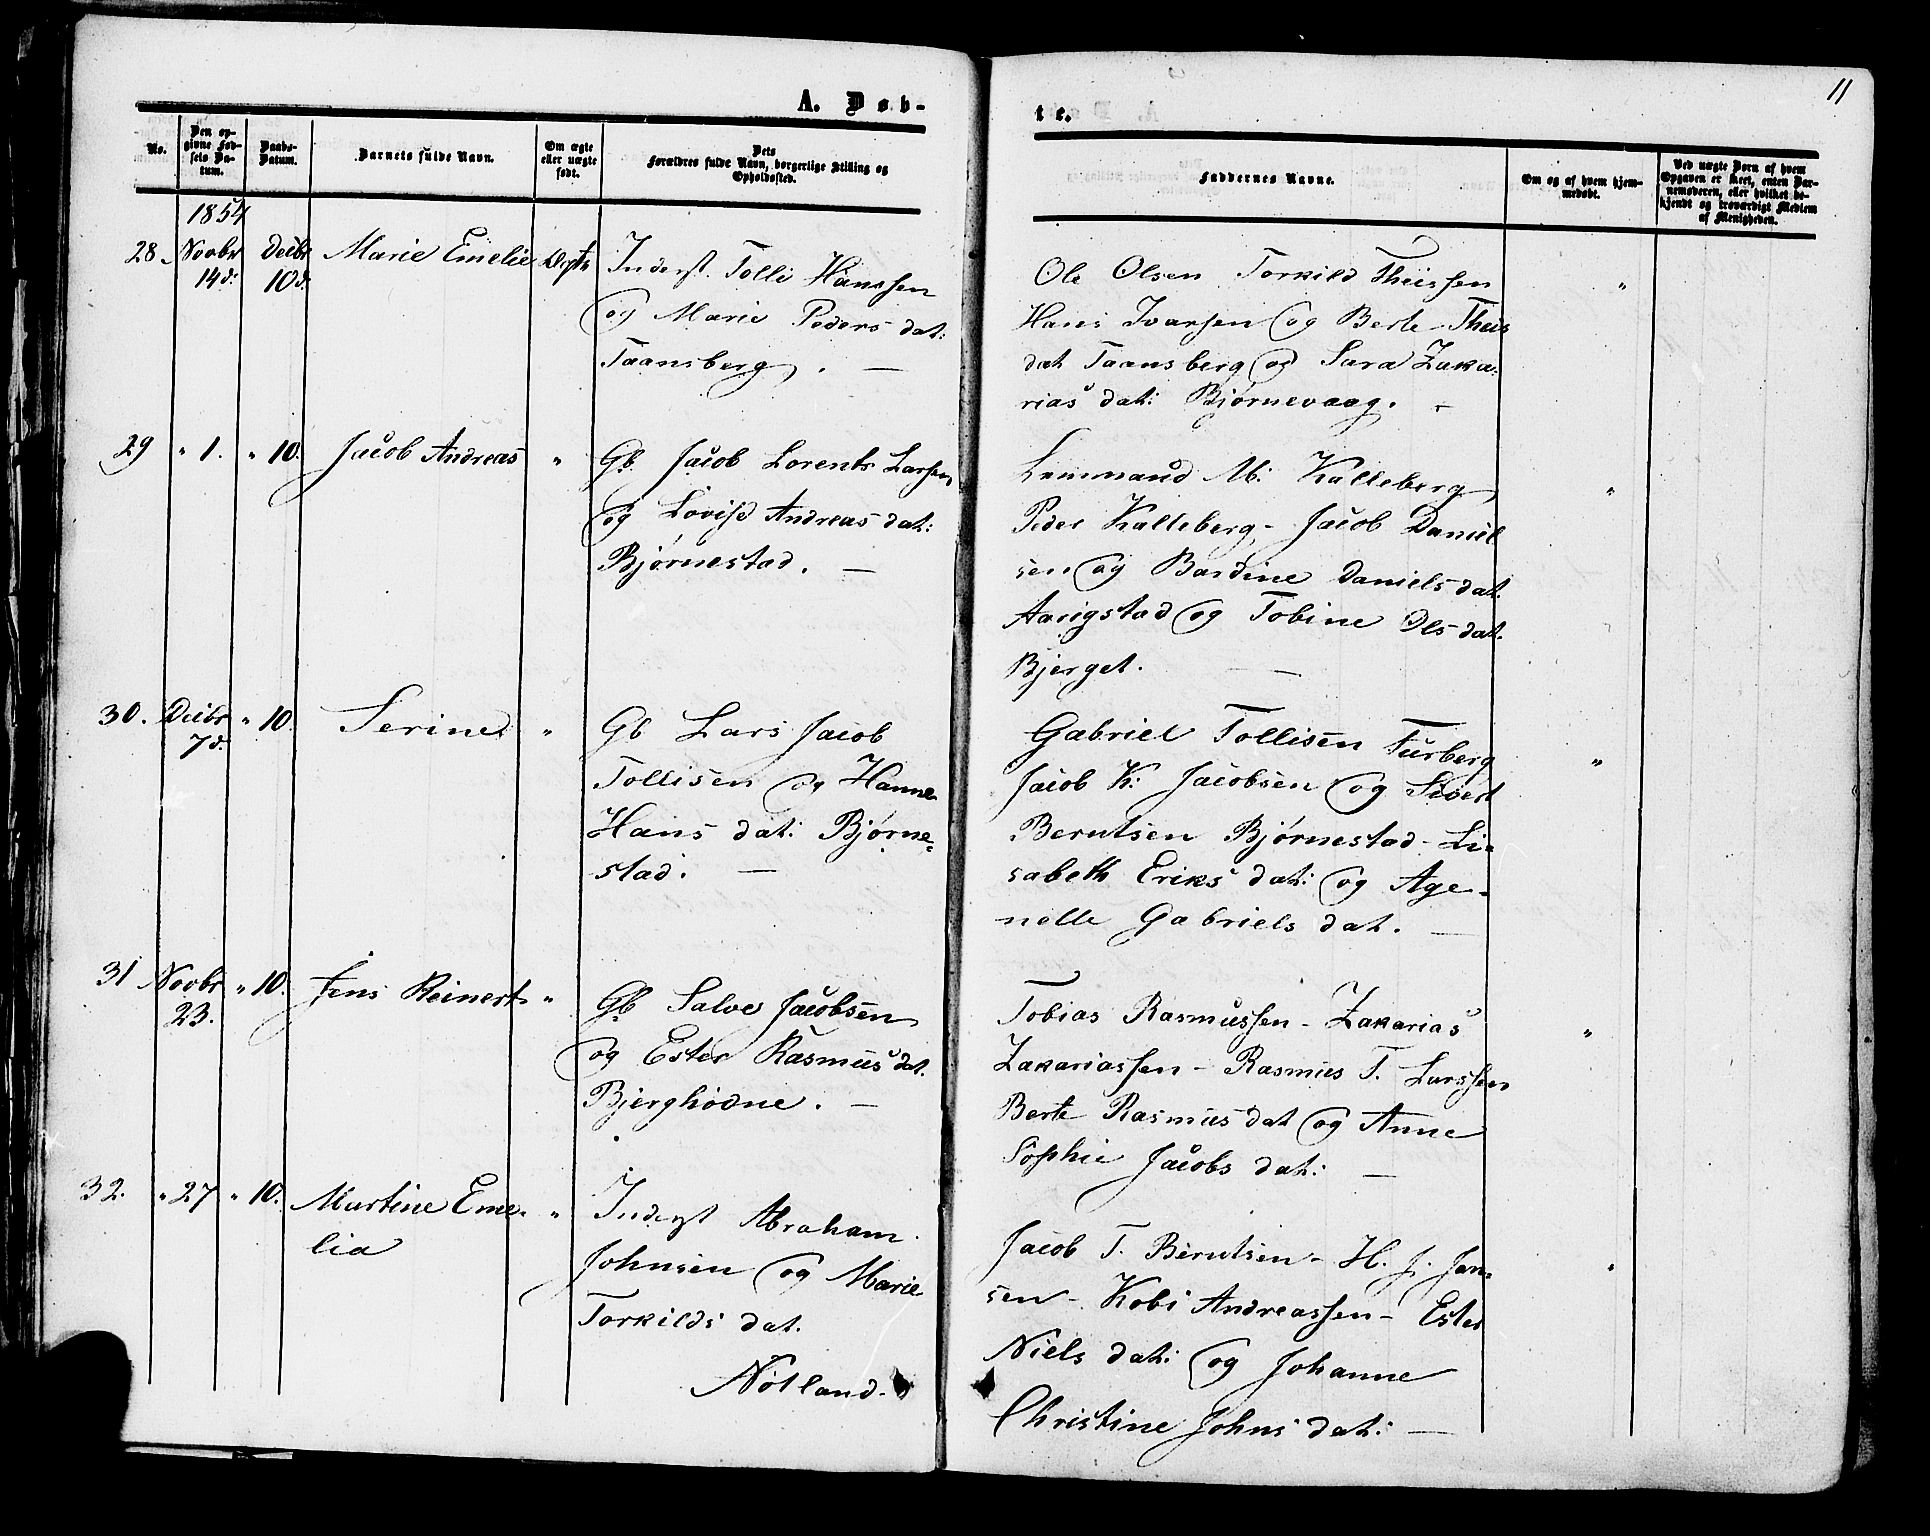 A. Døb-
No.
Den op-
givne Fød-
sels Da-
tum.
Daabs-
Datum.
Barnets fulde Navn.
Om ægte
eller uægte
født.
Dets
Forældres fulde Navn, borgerlige Stilling og
Opholdssted.
1854
28. Novbr Decbr Marie Emelie Ægte Inderst. Tolli Hanssen
14d: 10d: og Marie Peders dat:
Taansberg. —
29 " 1. " 10. Jacob Andreas " Gb. Jacob Lorents Larsen
og Lovise Andreas dat:
Bjørnestad. —
30. Decbr " 10. Serine " Gb Lars Jacob
7d. Tollisen og Hanne
Hans dat: Bjørne-
stad. —
31 Novbr " 10. Jens Reinert " Gb. Salve Jacobsen
23. og Ester Rasmus dat.
Bjerghodne. —
32. " 27 " 10. Martine Eme- " Inderst Abraham
lia Johnsen og Marie
Torkilds dat.
Nötland.
11
te.
Faddernes Navne.
Om og af hvem hjem-
medøbt.
Ved uægte Børn af hvem
Opgaven er skeet, enten Bar-
nemoderen, eller hvilket be-
kjendt og troværdigt Medlem
af Menigheden.
Ole Olsen Torkild Theissen "
Hans Ivarsen og Berte Theis
dat Taansberg og Sara Zaka-
rias dat: Bjørnevaag. -
Lemmand M: Kalleberg "
Peder Kalleberg - Jacob Daniel
sen og Bardine Daniels dat.
Aarigstad og Tobine Ols dat.
Bjerget. —
Gabriel Tollisen Furberg "
Jacob K: Jacobsen og Sivert
Berntsen Bjørnestad - Li-
sabeth Eriks dat: og Age-
nelle Gabriels dat. —
Tobias Rasmussen - Zakarias "
Zakariassen - Rasmus T. Larssen
Berte Rasmus dat og Anne
Sophie Jacobs dat: —
Jacob T. Berntsen - H. J. Jan- "
sen - Kobi Andreassen - Ester
Niels dat: og Johanne
Christine Johns dat: —